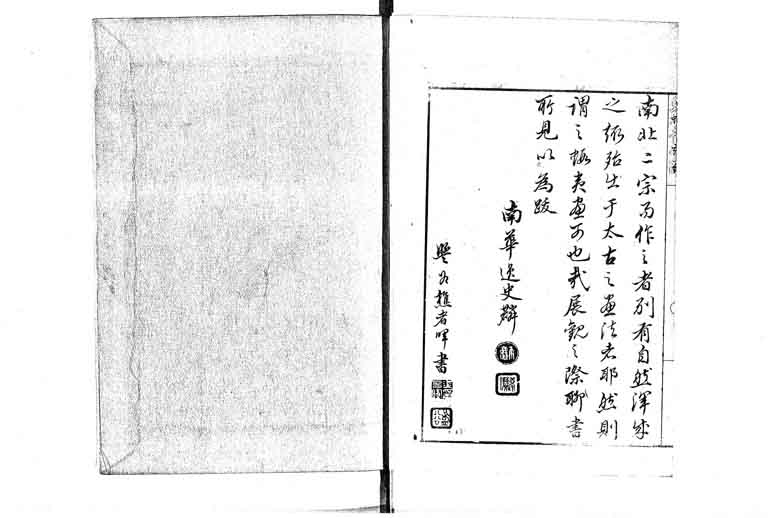 南北二宗而作之者別有自然渾成
之趣殆出于太古之畫法者耶然則
謂之極夷畫可也我展観之際聊書
所見以為跋
南華逸史
樵者暉書